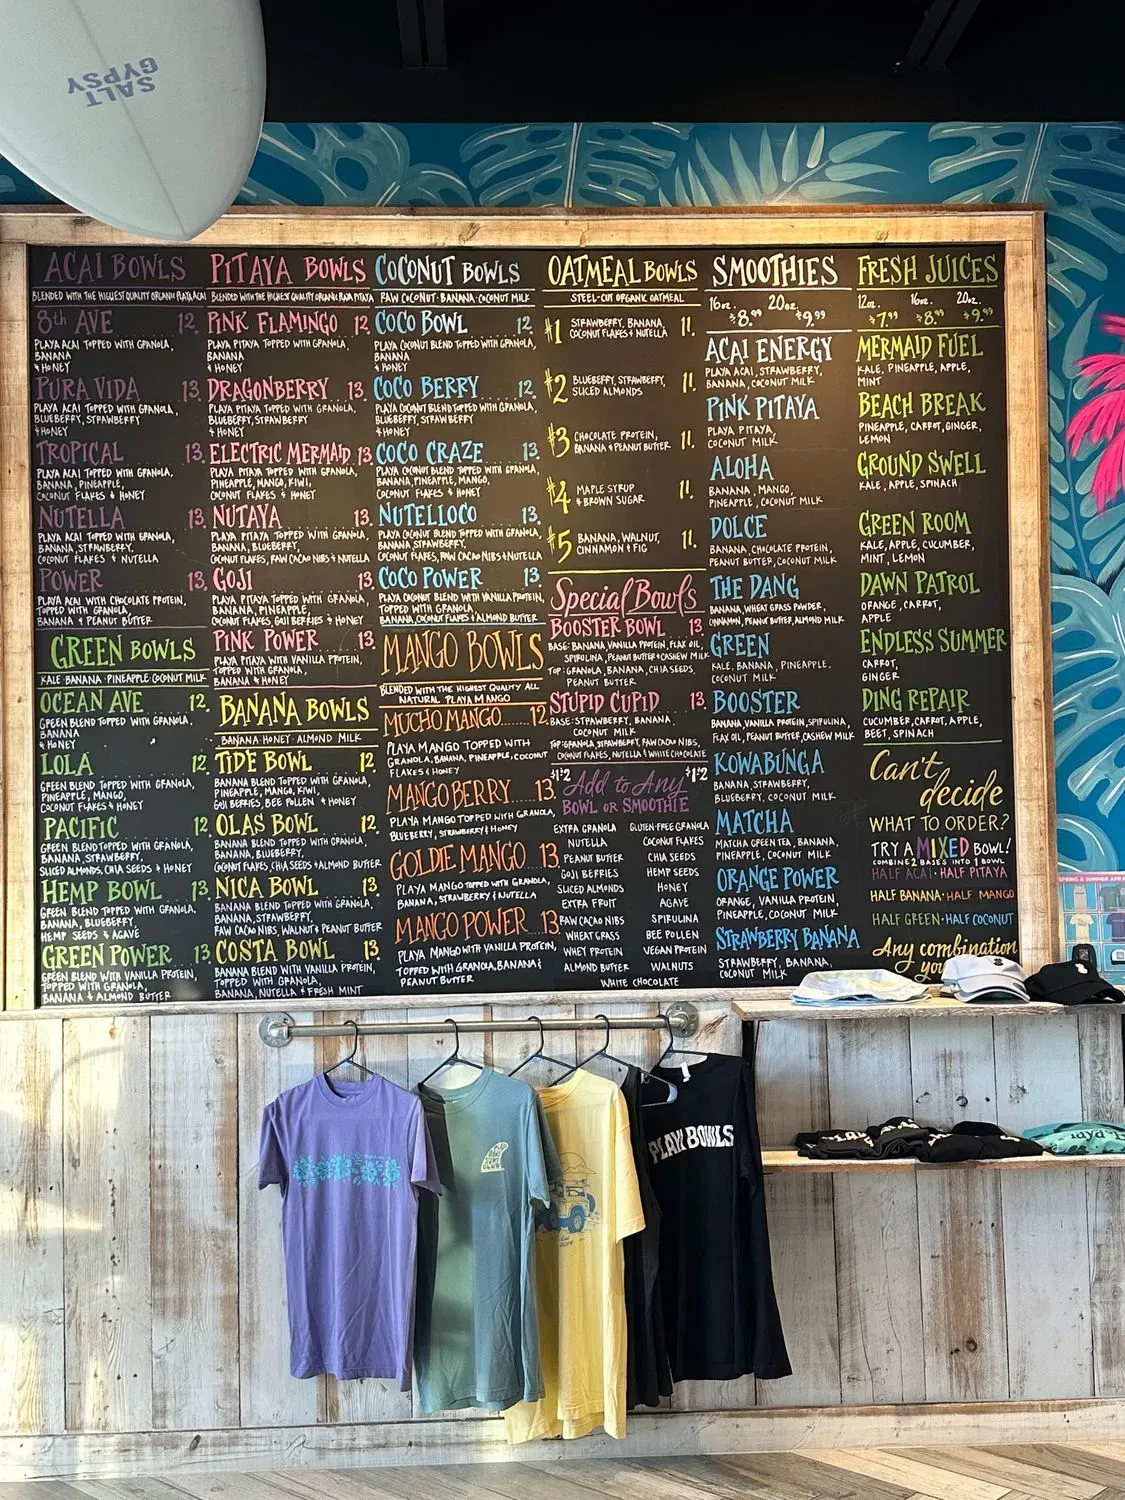 SALT
GYPSY
ACAI BOWLS
BLENDED WITH THE HIGHEST QUALITY ORGANIC PLAYA ACAI
8th AVE 12.
PLAYA ACAI TOPPED WITH GRANOLA,
BANANA
& HONEY
PURA VIDA 13.
PLAYA ACAI TOPPED WITH GRANOLA,
BLUEBERRY, STRAWBERRY
& HONEY
TROPICAL 13.
PLAYA ACAI TOPPED WITH GRANOLA,
BANANA, PINEAPPLE,
COCONUT FLAKES & HONEY
NUTELLA 13.
PLAYA ACAI TOPPED WITH GRANOLA,
BANANA, STRAWBERRY,
COCONUT FLAKES & NUTELLA
POWER 13.
PLAYA ACAI WITH CHOCOLATE PROTEIN,
TOPPED WITH GRANOLA,
BANANA & PEANUT BUTTER
GREEN BOWLS
KALE·BANANA·PINEAPPLE·COCONUT MILK
OCEAN AVE 12.
GREEN BLEND TOPPED WITH GRANOLA,
BANANA
& HONEY
LOLA 12.
GREEN BLEND TOPPED WITH GRANOLA,
PINEAPPLE, MANGO,
COCONUT FLAKES & HONEY
PACIFIC 12.
GREEN BLEND TOPPED WITH GRANOLA,
BANANA, STRAWBERRY,
SLICED ALMONDS, CHIA SEEDS & HONEY
HEMP BOWL 13.
GREEN BLEND TOPPED WITH GRANOLA,
BANANA, BLUEBERRY,
HEMP SEEDS & AGAVE
GREEN POWER 13.
GREEN BLEND WITH VANILLA PROTEIN,
TOPPED WITH GRANOLA,
BANANA & ALMOND BUTTER
PITAYA BOWLS
BLENDED WITH THE HIGHEST QUALITY ORGANIC RAW PITAYA
PINK FLAMINGO 12.
PLAYA PITAYA TOPPED WITH GRANOLA,
BANANA
& HONEY
DRAGONBERRY 13.
PLAYA PITAYA TOPPED WITH GRANOLA,
BLUEBERRY, STRAWBERRY
& HONEY
ELECTRIC MERMAID 13.
PLAYA PITAYA TOPPED WITH GRANOLA,
PINEAPPLE, MANGO, KIWI,
COCONUT FLAKES & HONEY
NUTAYA 13.
PLAYA PITAYA TOPPED WITH GRANOLA,
BANANA, BLUEBERRY,
COCONUT FLAKES, RAW CACAO NIBS & NUTELLA
GOJI 13.
PLAYA PITAYA TOPPED WITH GRANOLA,
BANANA, PINEAPPLE,
COCONUT FLAKES, GOJI BERRIES & HONEY
PINK POWER 13.
PLAYA PITAYA WITH VANILLA PROTEIN,
TOPPED WITH GRANOLA,
BANANA & HONEY
BANANA BOWLS
BANANA·HONEY·ALMOND MILK
TIDE BOWL 12
BANANA BLEND TOPPED WITH GRANOLA,
PINEAPPLE, MANGO, KIWI,
GOJI BERRIES, BEE POLLEN & HONEY
OLAS BOWL 12.
BANANA BLEND TOPPED WITH GRANOLA,
BANANA, BLUEBERRY,
COCONUT FLAKES, CHIA SEEDS & ALMOND BUTTER
NICA BOWL 13.
BANANA BLEND TOPPED WITH GRANOLA,
BANANA, STRAWBERRY,
RAW CACAO NIBS, WALNUT & PEANUT BUTTER
COSTA BOWL 13.
BANANA BLEND WITH VANILLA PROTEIN,
TOPPED WITH GRANOLA,
BANANA, NUTELLA & FRESH MINT
COCONUT BOWLS
RAW COCONUT·BANANA·COCONUT MILK
COCO BOWL 12.
PLAYA COCONUT BLEND TOPPED WITH GRANOLA,
BANANA
& HONEY
COCO BERRY 12.
PLAYA COCONUT BLEND TOPPED WITH GRANOLA,
BLUEBERRY, STRAWBERRY
& HONEY
COCO CRAZE 13.
PLAYA COCONUT BLEND TOPPED WITH GRANOLA,
BANANA, PINEAPPLE, MANGO,
COCONUT FLAKES & HONEY
NUTELLOCO 13.
PLAYA COCONUT BLEND TOPPED WITH GRANOLA,
BANANA, STRAWBERRY,
COCONUT FLAKES, RAW CACAO NIBS & NUTELLA
COCO POWER 13.
PLAYA COCONUT BLEND WITH VANILLA PROTEIN,
TOPPED WITH GRANOLA,
BANANA, COCONUT FLAKES & ALMOND BUTTER
MANGO BOWLS
BLENDED WITH THE HIGHEST QUALITY ALL
NATURAL PLAYA MANGO
MUCHO MANGO........12.
PLAYA MANGO TOPPED WITH
GRANOLA, BANANA, PINEAPPLE, COCONUT
FLAKES & HONEY
MANGO BERRY.....13.
PLAYA MANGO TOPPED WITH GRANOLA,
BLUEBERRY, STRAWBERRY & HONEY
GOLDIE MANGO...13.
PLAYA MANGO TOPPED WITH GRANOLA,
BANANA, STRAWBERRY & NUTELLA
MANGO POWER...13.
PLAYA MANGO WITH VANILLA PROTEIN,
TOPPED WITH GRANOLA, BANANA &
PEANUT BUTTER
OATMEAL BOWLS
STEEL-CUT ORGANIC OATMEAL
#1 STRAWBERRY, BANANA, 11.
COCONUT FLAKES & NUTELLA
#2 BLUEBERRY, STRAWBERRY, 11.
SLICED ALMONDS
#3 CHOCOLATE PROTEIN, 11.
BANANA & PEANUT BUTTER
#4 MAPLE SYRUP 11.
& BROWN SUGAR
#5 BANANA, WALNUT, 11.
CINNAMON & FIG
Special Bowls
BOOSTER BOWL 13.
BASE: BANANA, VANILLA PROTEIN, FLAX OIL,
SPIRULINA, PEANUT BUTTER & CASHEW MILK
TOP: GRANOLA, BANANA, CHIA SEEDS,
PEANUT BUTTER
STUPID CUPID 13.
BASE: STRAWBERRY, BANANA,
COCONUT MILK
TOP: GRANOLA, STRAWBERRY, RAW CACAO NIBS,
COCONUT FLAKES, NUTELLA & WHITE CHOCOLATE
$1-$2 Add to Any $1-$2
BOWL OR SMOOTHIE
EXTRA GRANOLA GLUTEN-FREE GRANOLA
NUTELLA COCONUT FLAKES
PEANUT BUTTER CHIA SEEDS
GOJI BERRIES HEMP SEEDS
SLICED ALMONDS HONEY
EXTRA FRUIT AGAVE
RAW CACAO NIBS SPIRULINA
WHEATGRASS BEE POLLEN
WHEY PROTEIN VEGAN PROTEIN
ALMOND BUTTER WALNUTS
WHITE CHOCOLATE
SMOOTHIES
16oz. 20oz.
$8.99 $9.99
ACAI ENERGY
PLAYA ACAI, STRAWBERRY,
BANANA, COCONUT MILK
PINK PITAYA
PLAYA PITAYA,
COCONUT MILK
ALOHA
BANANA, MANGO,
PINEAPPLE, COCONUT MILK
DOLCE
BANANA, CHOCOLATE PROTEIN,
PEANUT BUTTER, COCONUT MILK
THE DANG
BANANA, WHEAT GRASS POWDER,
CINNAMON, PEANUT BUTTER, ALMOND MILK
GREEN
KALE, BANANA, PINEAPPLE,
COCONUT MILK
BOOSTER
BANANA, VANILLA PROTEIN, SPIRULINA,
FLAX OIL, PEANUT BUTTER, CASHEW MILK
KOWABUNGA
BANANA, STRAWBERRY,
BLUEBERRY, COCONUT MILK
MATCHA
MATCHA GREEN TEA, BANANA,
PINEAPPLE, COCONUT MILK
ORANGE POWER
ORANGE, VANILLA PROTEIN,
PINEAPPLE, COCONUT MILK
STRAWBERRY BANANA
STRAWBERRY, BANANA,
COCONUT MILK
FRESH JUICES
12oz. 16oz. 20oz.
$7.99 $8.99 $9.99
MERMAID FUEL
KALE, PINEAPPLE, APPLE,
MINT
BEACH BREAK
PINEAPPLE, CARROT, GINGER,
LEMON
GROUND SWELL
KALE, APPLE, SPINACH
GREEN ROOM
KALE, APPLE, CUCUMBER,
MINT, LEMON
DAWN PATROL
ORANGE, CARROT,
APPLE
ENDLESS SUMMER
CARROT,
GINGER
DING REPAIR
CUCUMBER, CARROT, APPLE,
BEET, SPINACH
Can't
decide
WHAT TO ORDER?
TRY A MIXED BOWL!
COMBINE 2 BASES INTO 1 BOWL
HALF ACAI·HALF PITAYA
HALF BANANA·HALF MANGO
HALF GREEN·HALF COCONUT
Any combination
you
SPRING & SUMMER
PLAYA BOWLS